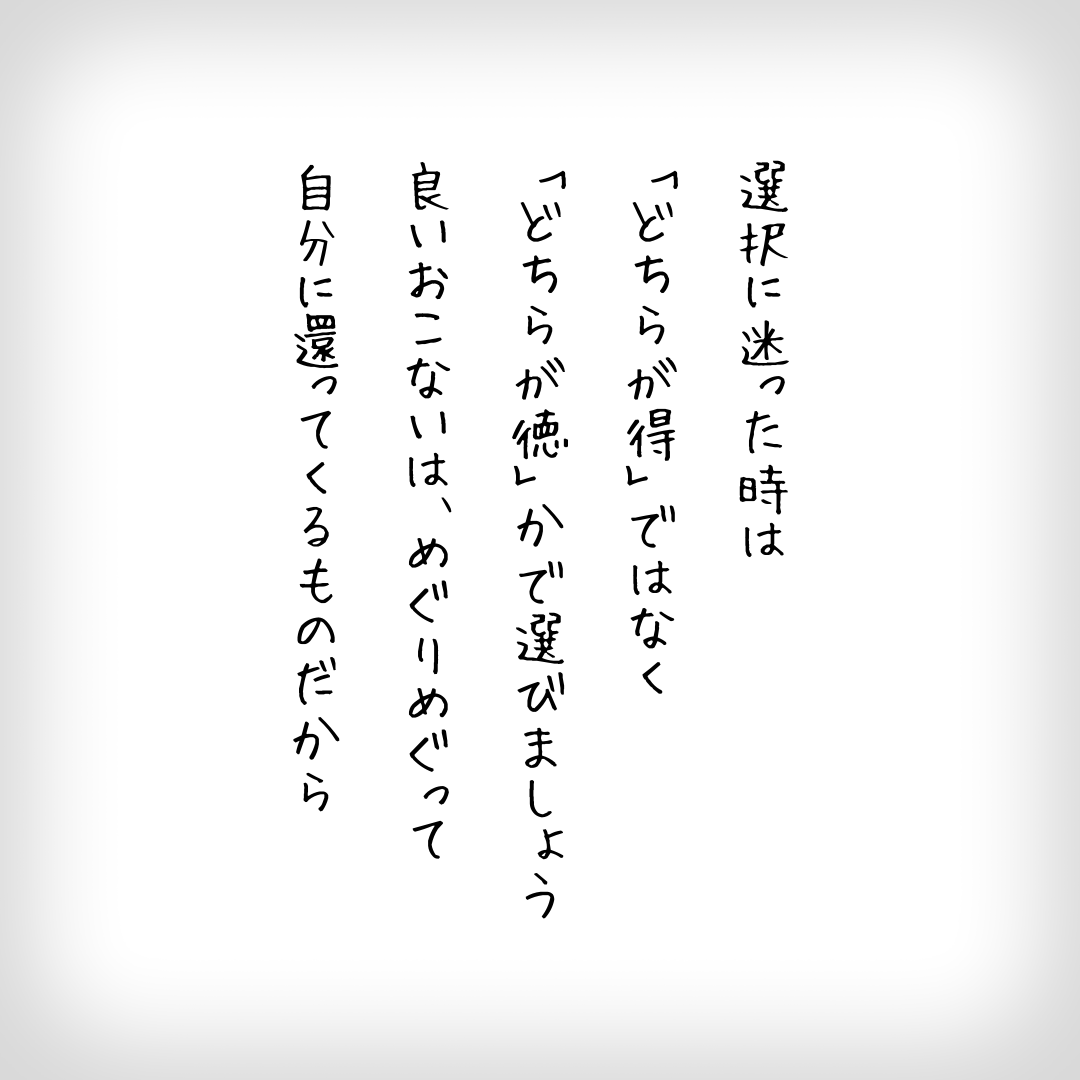 選択に迷った時は
「どちらが得」ではなく
「どちらが徳」かで選びましょう
良いおこないは、めぐりめぐって
自分に還ってくるものだから